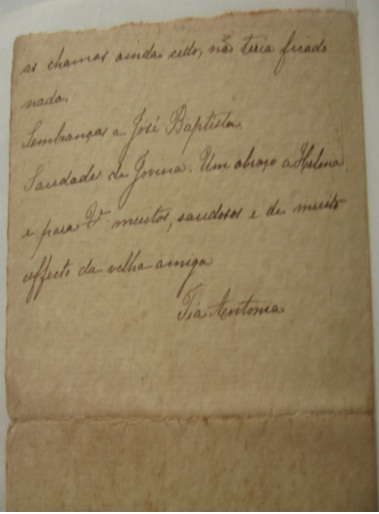 as chamas ainda cedo, não teria ficado
nada.
Lembranças a José Baptista.
Saudade de Jovina. Um abraço a Helena,
e para V. muitos, saudosos e de muito
affecto da velha amiga
Tia Antonia